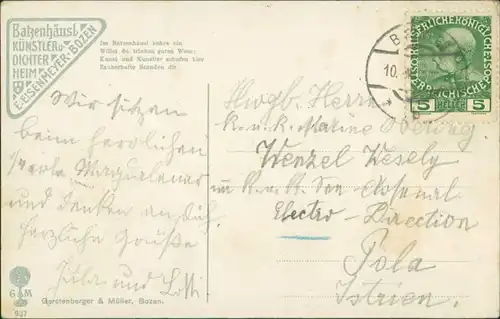 Batzenhäusl
KÜNSTLER u.
DICHTER
HEIM
E. EISENMEYER · BOZEN
Im Batzenhäusl kehre ein
Willst du trinken guten Wein;
Kunst und Künstler schufen hier
Zauberhafte Stunden dir.
Wir sitzen
beim herrlichen
Magdalener
und denken an Dich
herzliche Grüße
Jula und Lotti
G M
937
Gerstenberger & Müller, Bozen.
KAISERLICHE KÖNIGLICHE
ÖSTERREICHISCHE POST
5 HELLER 5
10.
Herrn
k. u. k. Marine
Wenzel Wesely
im k. u. k. See Arsenal
Electro-Direction
Pola
Istrien.